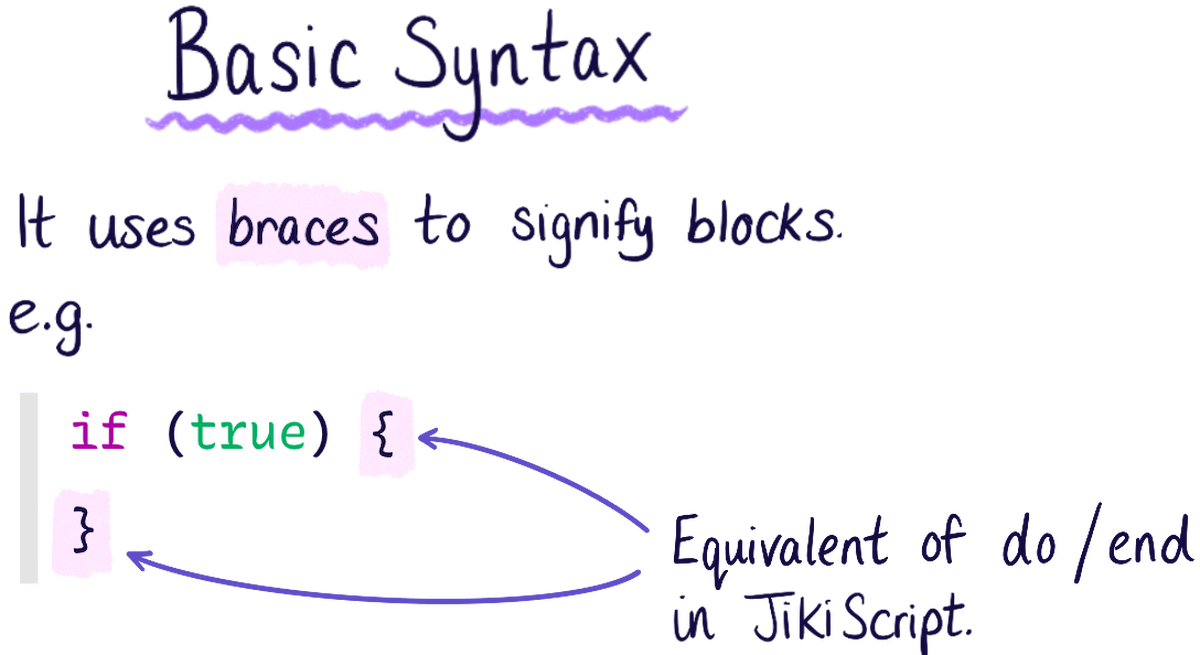 Basic Syntax
It uses braces to signify blocks.
e.g.
if (true) {
}
Equivalent of do/end
in JikiScript.